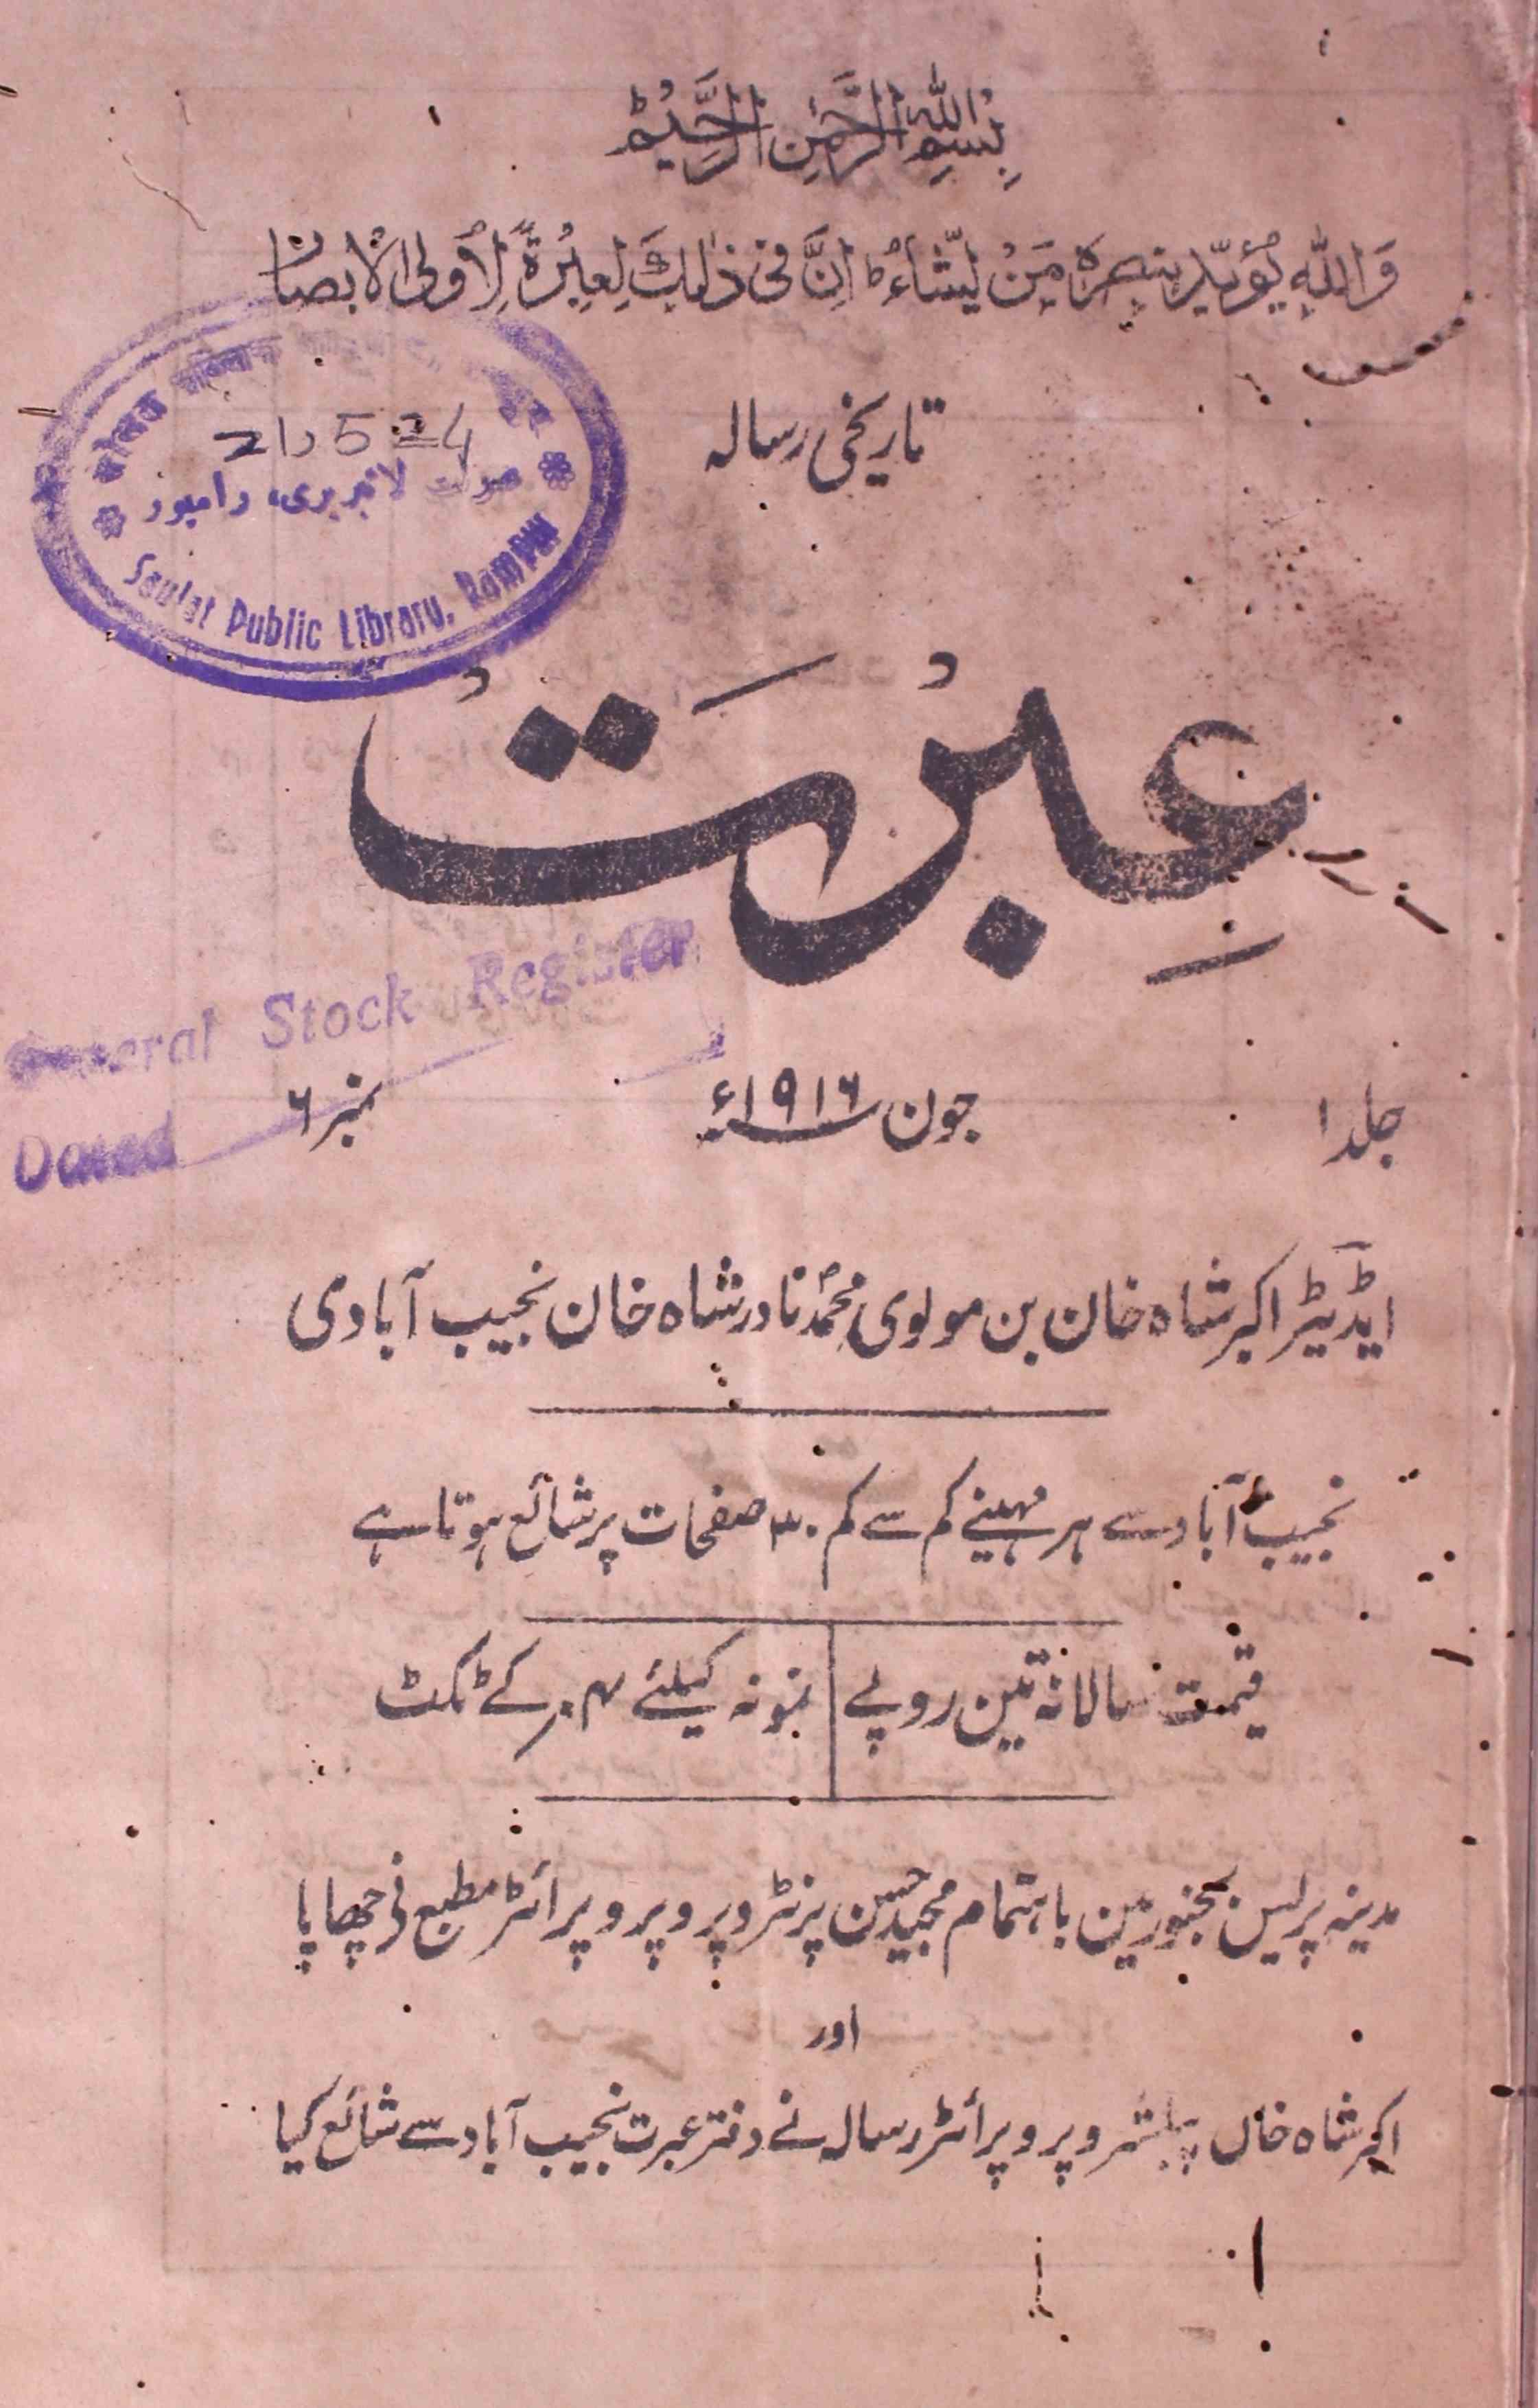 بِسْمِ اللّٰهِ الرَّحْمٰنِ الرَّحِيْمِ
وَاللّٰهُ يُؤَيِّدُ بِنَصْرِهٖ مَنْ يَّشَآءُ ط اِنَّ فِیْ ذٰلِكَ لَعِبْرَةً لِّاُولِی الْاَبْصَار
تاریخی رسالہ
21،524
صولت لائبریری، رامپور
Saulat Public Library, Rampur
عِبْرَتْ
General Stock Register
Dated
جلد ۱
جون ۱۹۱۶ء
نمبر ۶
ایڈیٹر اکبر شاہ خان بن مولوی محمدؐ نادر شاہ خان نجیب آبادی
نجیب آباد سے ہر مہینے کم سے کم ۳۰ صفحات پر شائع ہوتا ہے
قیمت سالانہ تین روپے
نمونہ کیلئے ۴؍ کے ٹکٹ
مدینہ پریس بجنور مین باہتمام مجید حسن پرنٹر و پروپرائٹر مطبع نے چھاپا
اور
اکبر شاہ خاں پبلشر و پروپرائٹر رسالہ نے دفتر عبرت نجیب آباد سے شائع کیا